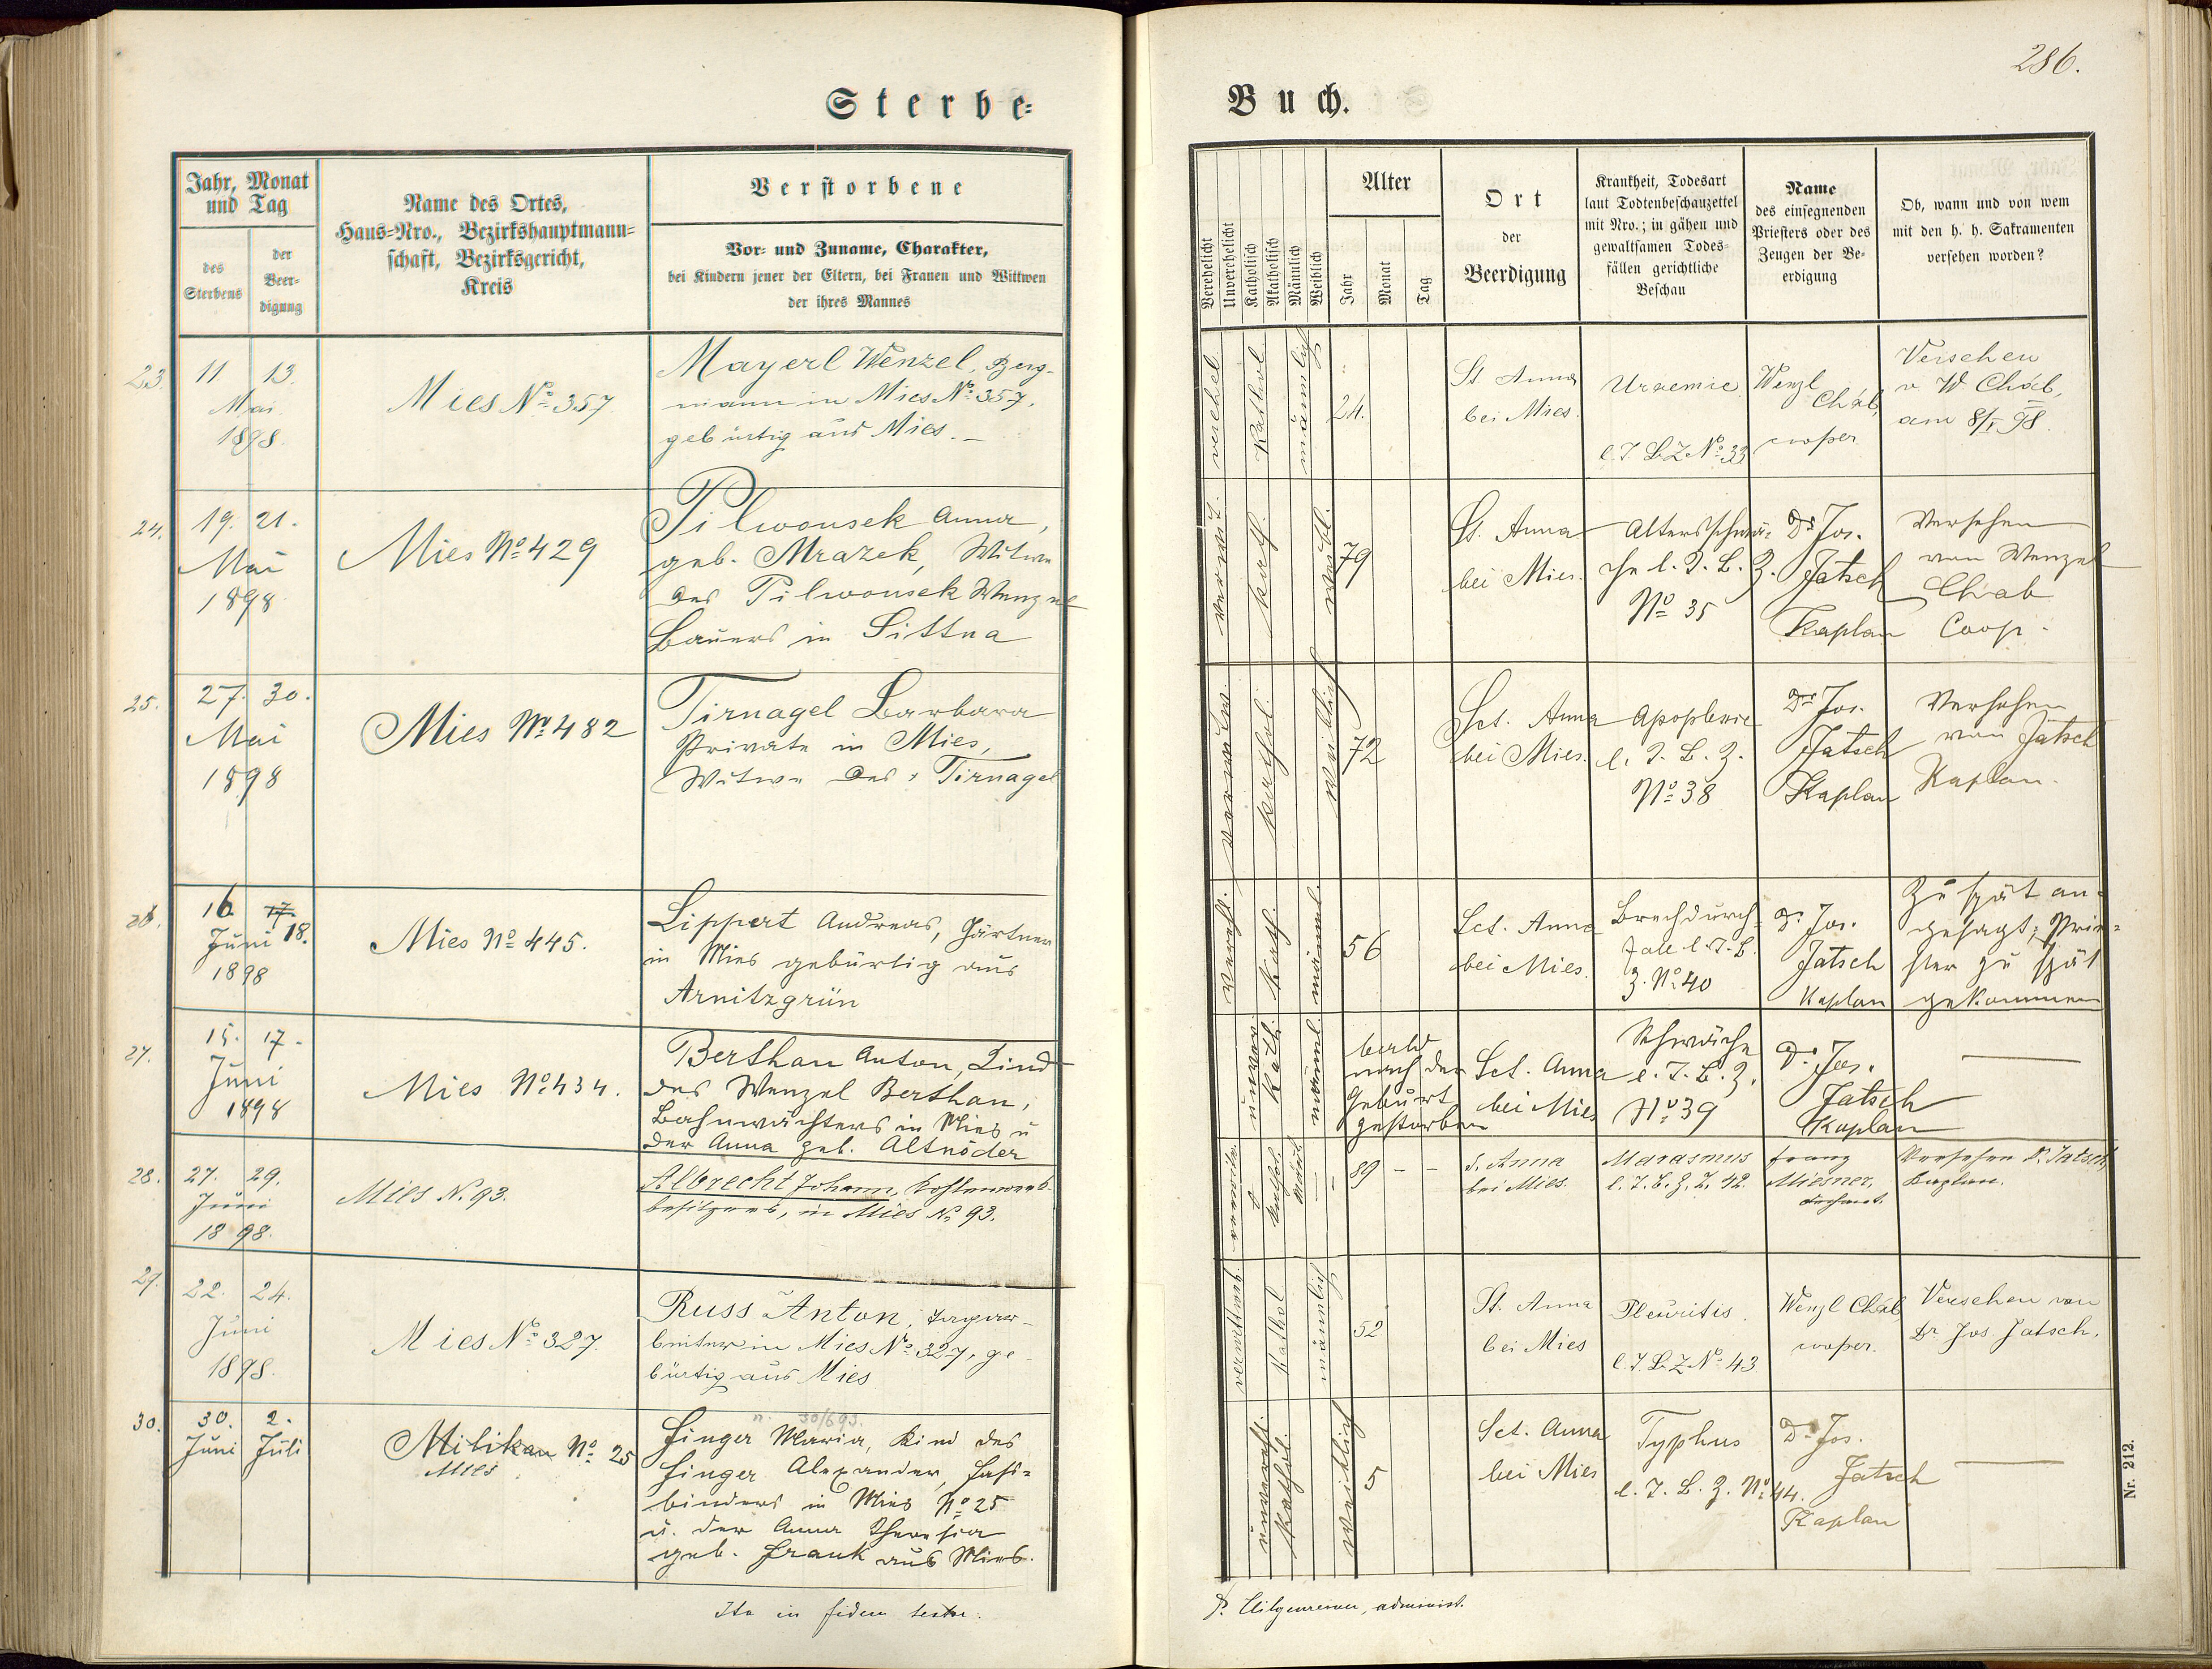 286.
Sterbe-
Buch.
Jahr, Monat
und Tag
des
Sterbens
der
Beer-
digung
Name des Ortes,
Haus-Nro., Bezirkshauptmann-
schaft, Bezirksgericht,
Kreis
Verstorbene
Vor- und Zuname, Charakter,
bei Kindern jener der Eltern, bei Frauen und Wittwen
der ihres Mannes
Verehelicht
Unverehelicht
Katholisch
Akatholisch
Männlich
Weiblich
Alter
Jahr
Monat
Tag
Ort
der
Beerdigung
Krankheit, Todesart
laut Todtenbeschauzettel
mit Nro.; in gähen und
gewaltsamen Todes-
fällen gerichtliche
Beschau
Name
des einsegnenden
Priesters oder des
Zeugen der Be-
erdigung
Ob, wann und von wem
mit den h. h. Sakramenten
versehen worden?
23
11 13.
Mai
1898.
Mies No 357
Mayerl Wenzel, Berg-
mann in Mies No 357,
gebürtig aus Mies. –
verehel.
Kathol.
männlich
24.
St Anna
bei Mies.
Uraemie
l. T. B. Z No 33
Wenzl
Cháb,
cooper.
Versehen
v W Cháb,
am 8/5 98.
24.
19. 21.
Mai
1898
Mies No 429
Pilwousek Anna,
geb. Mrazek, Witwe
des Pilwousek Wenzel
Bauers in Sittna
verwit.
kath.
weibl.
79
St. Anna
bei Mies.
Altersschwä-
che l. T. B. Z.
No 35
Dr Jos.
Jatsch
Kaplan
Versehen
von Wenzel
Chab
Coop.
25.
27. 30.
Mai
1898
Mies No 482
Tirnagel Barbara
Private in Mies,
Witwe des Tirnagel
verwitw.
kathol.
weiblich
72
Sct. Anna
bei Mies.
Apoplexie
l. T. B. Z.
No 38
Dr Jos.
Jatsch
Kaplan
Versehen
von Jatsch
Kaplan.
26.
16. 17.
Juni 18.
1898
Mies No 445.
Lippert Andreas, Gärtner
in Mies gebürtig aus
Arnitzgrün
verehl.
kath.
männl.
56
Sct. Anna
bei Mies.
Brechdurch-
fall l. T. B.
Z. No 40
Dr Jos.
Jatsch
Kaplan
Zu spät an-
gesagt; Prie-
ster zu spät
gekommen
27.
15. 17.
Juni
1898
Mies No 434.
Berthan Anton, Kind
des Wenzel Berthan,
Bahnwächters in Mies u
der Anna geb. Altnöder
unver
kath.
männl.
bald
nach der
Geburt
gestorben
Sct. Anna
bei Mies
Schwäche
l. T. B. Z.
No 39
Dr Jos.
Jatsch
Kaplan
28.
27. 29.
Juni
1898.
Mies N. 93.
Albrecht Johann,
besitzers, in Mies No 93.
verwitw.
kathol.
männl.
89 – –
S. Anna
bei Mies.
Marasmus
l. T. B. Z. Z. 42.
Franz
Miesner,
Dechant.
Versehen D. Jatsch
Kaplan.
29.
22. 24.
Juni
1898.
Mies No 327.
Russ Anton, Tagar-
beiter in Mies No 327, ge-
bürtig aus Mies
verwittweb.
Kathol
männlich
52
St. Anna
bei Mies
Pleuritis.
l. T. B. Z No 43
Wenzl Cháb
cooper.
Versehen von
Dr Jos Jatsch.
30.
30. 2.
Juni Juli
Milikau No 25
Mies
n. 30/6 93.
Singer Maria, Kind des
Singer Alexander, Faß-
binders in Mies No 25
u. der Anna Theresia
geb. Frank aus Mies.
unverehl.
kathol.
weiblich
5
Sct. Anna
bei Mies
Typhus
l. T. B. Z. No 44.
Dr Jos.
Jatsch
Kaplan
Ita in fidem
administ.
Nr. 212.